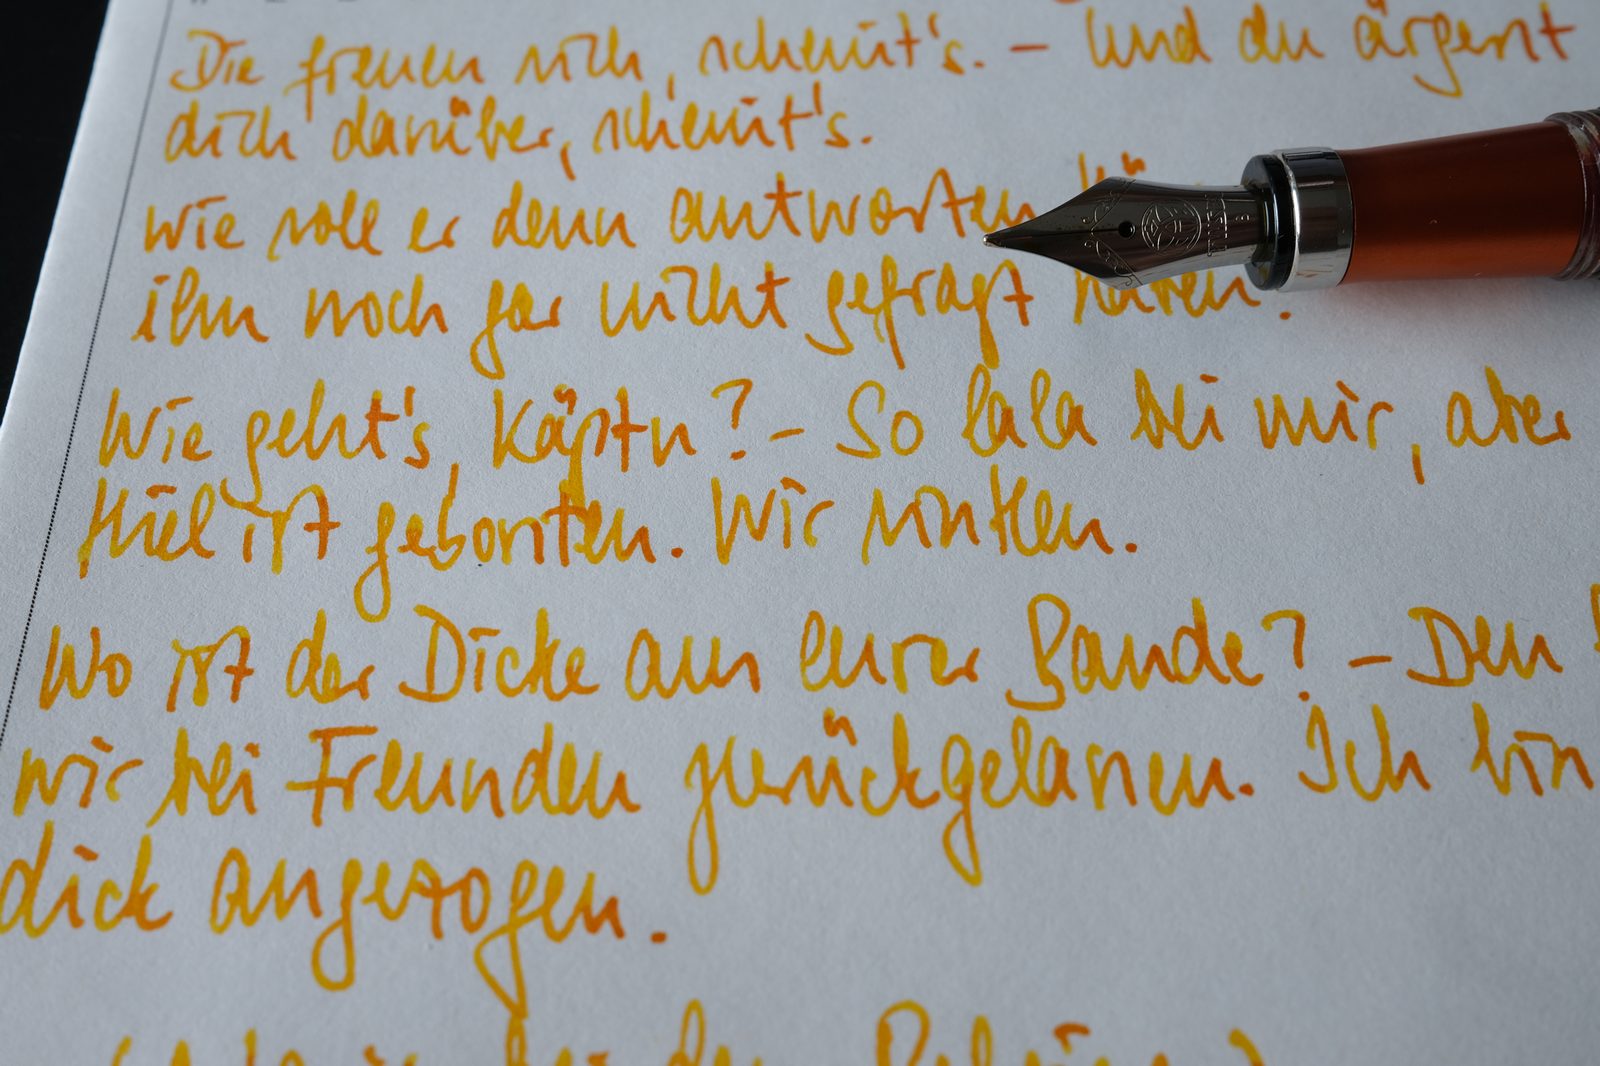 Die freuen sich, scheint's. – Und du ärgerst
dich darüber, scheint's.
Wie soll er denn antworten
ihm noch gar nicht gefragt
Wie geht's, Käptn? – So lala bei mir, aber
Kiel ist geborsten. Wir sinken.
Wo ist der Dicke aus eurer Bande? – Den
wir bei Freunden zurückgelassen. Ich bin
dick angezogen.